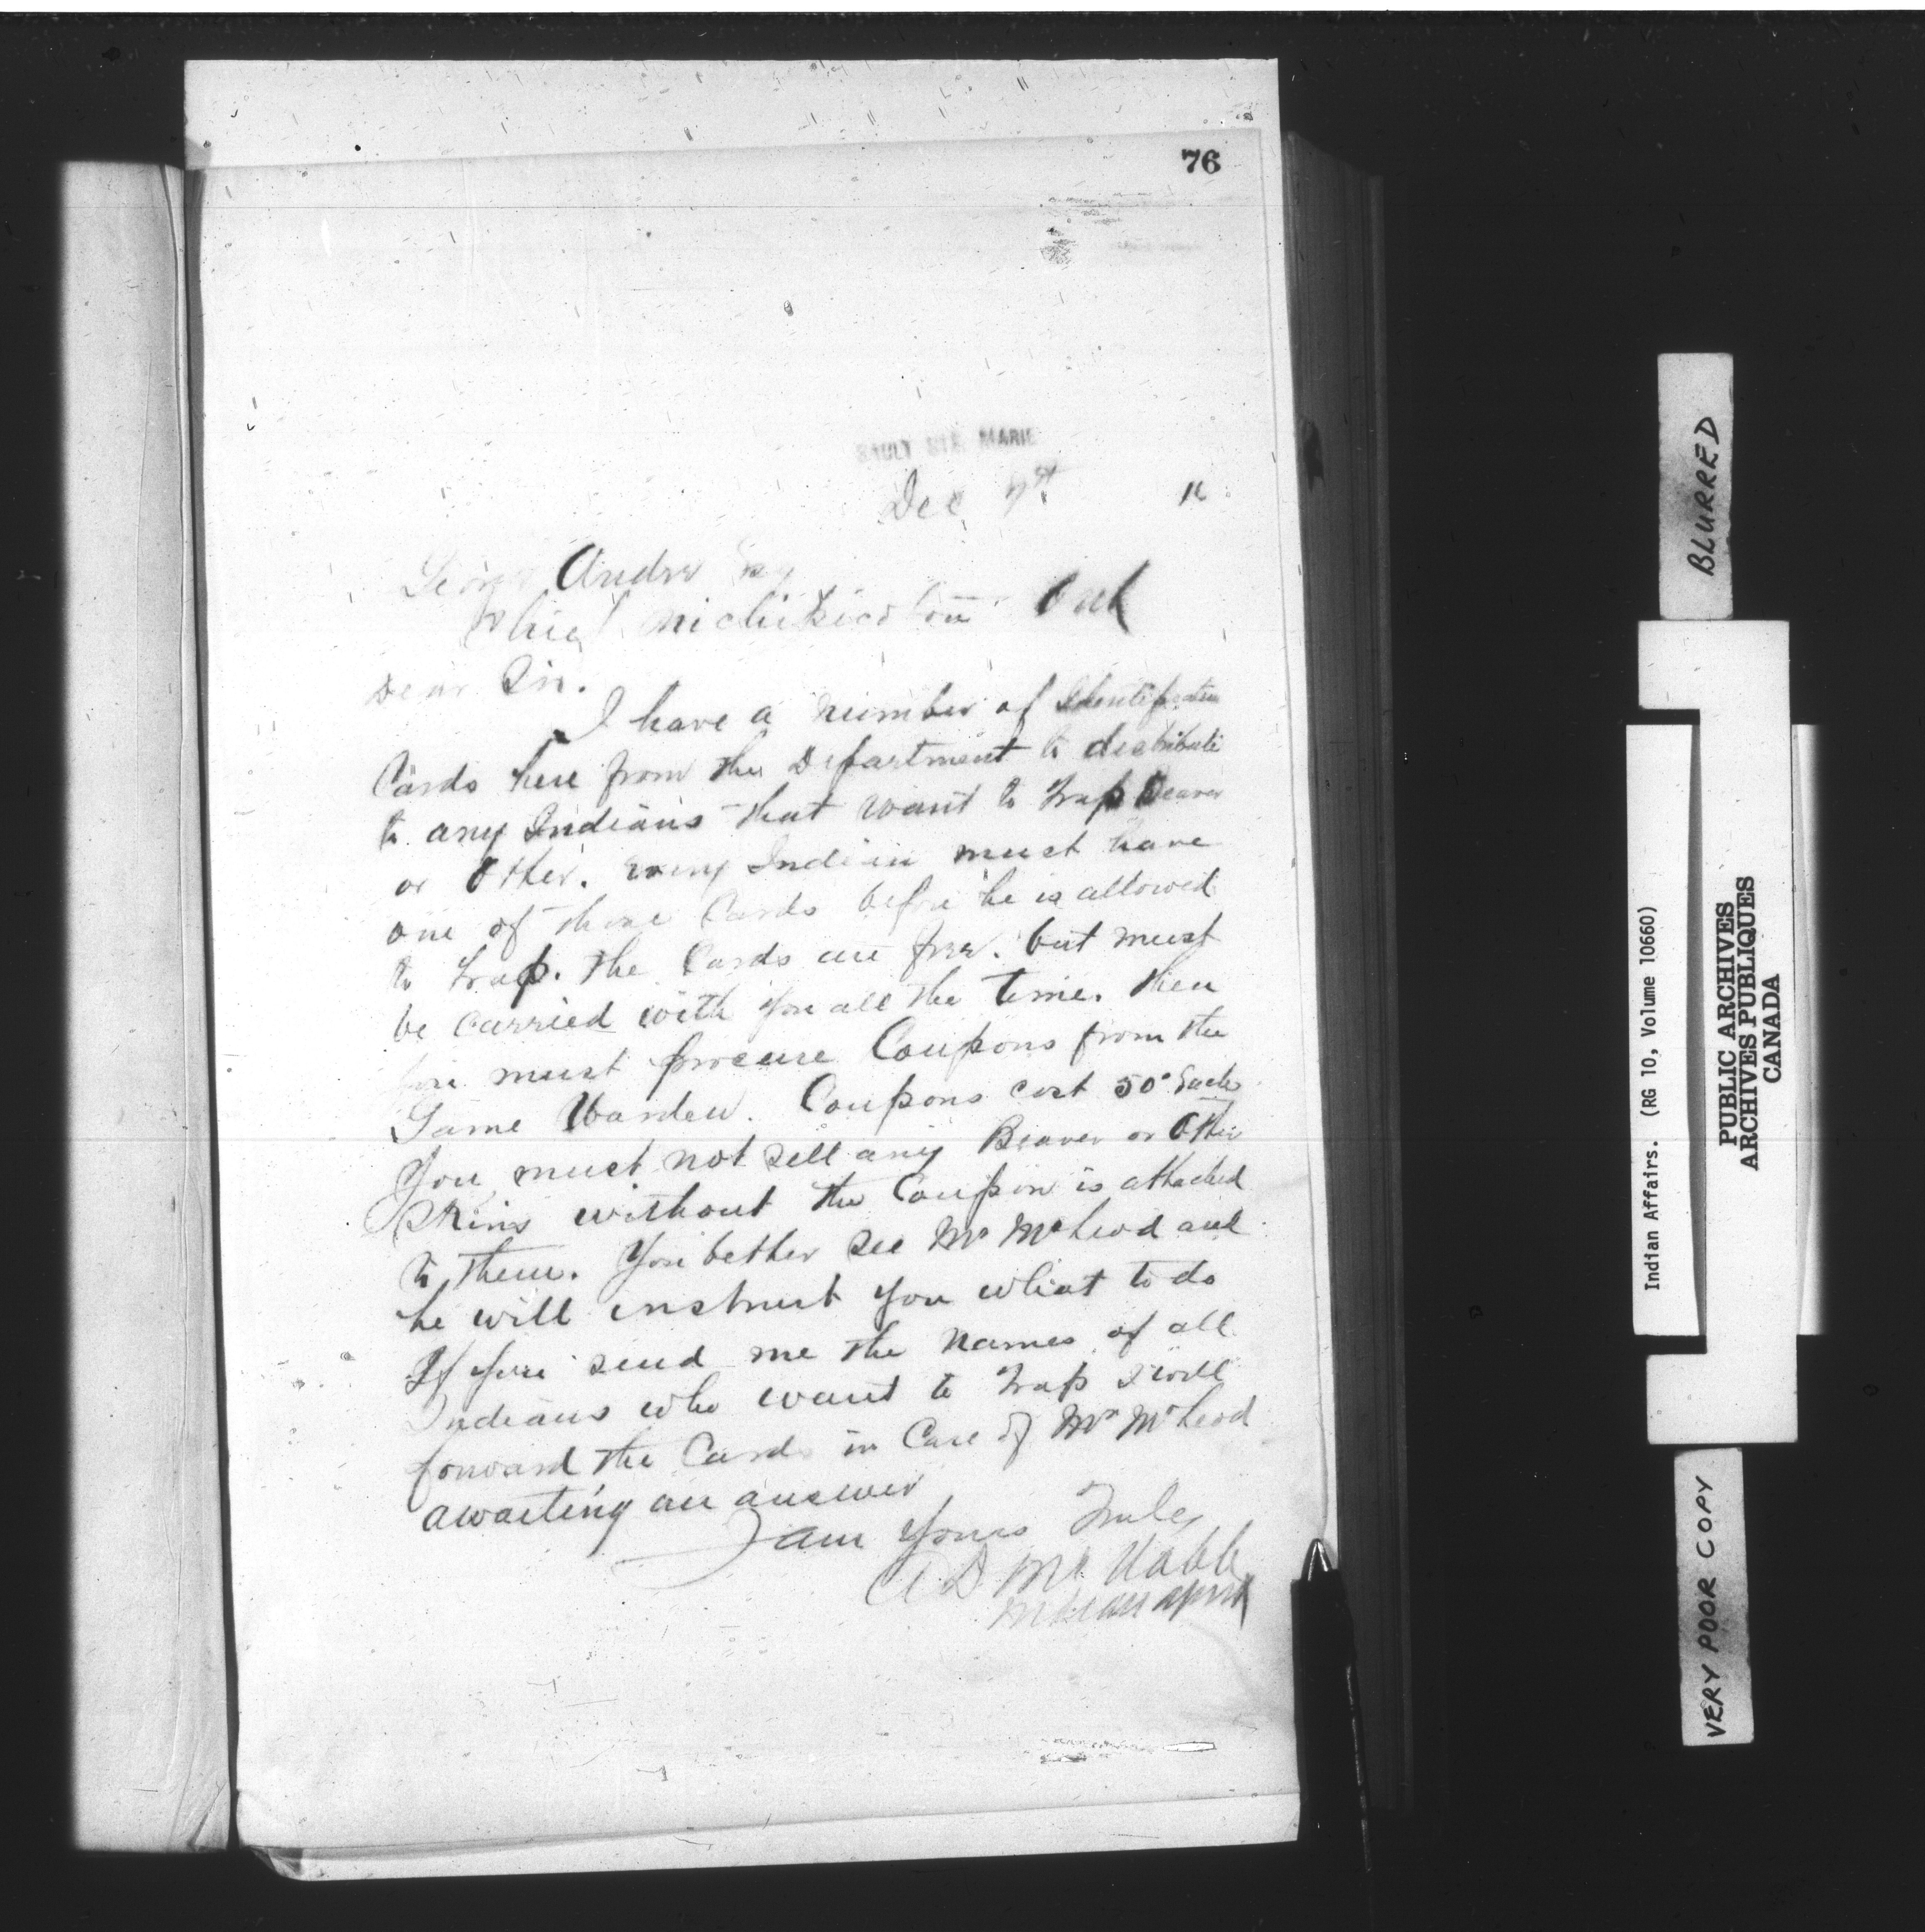 76
SAULT STE. MARIE
Dec
George Andre Esq
Chief Michipicoton Ont
Dear Sir.
I have a number of Identification
Cards here from the Department to distribute
to any Indians that want to trap Beaver
or Otter. Every Indian must have
one of those Cards before he is allowed
to trap. The Cards are free. but must
be carried with you all the time. then
you must procure Coupons from the
Game Warden. Coupons cost 50¢ Each
You must not sell any Beaver or Otter
Skins without the Coupon is attached
to them. You better see Mr McLeod and
he will instruct you what to do
If you send me the names of all
Indians who want to trap I will
forward the Cards in Care of Mr McLeod
awaiting an answer
I am Yours Truly
A D McNabb
Indian Agent
BLURRED
Indian Affairs. (RG 10, Volume 10660)
PUBLIC ARCHIVES
ARCHIVES PUBLIQUES
CANADA
VERY POOR COPY